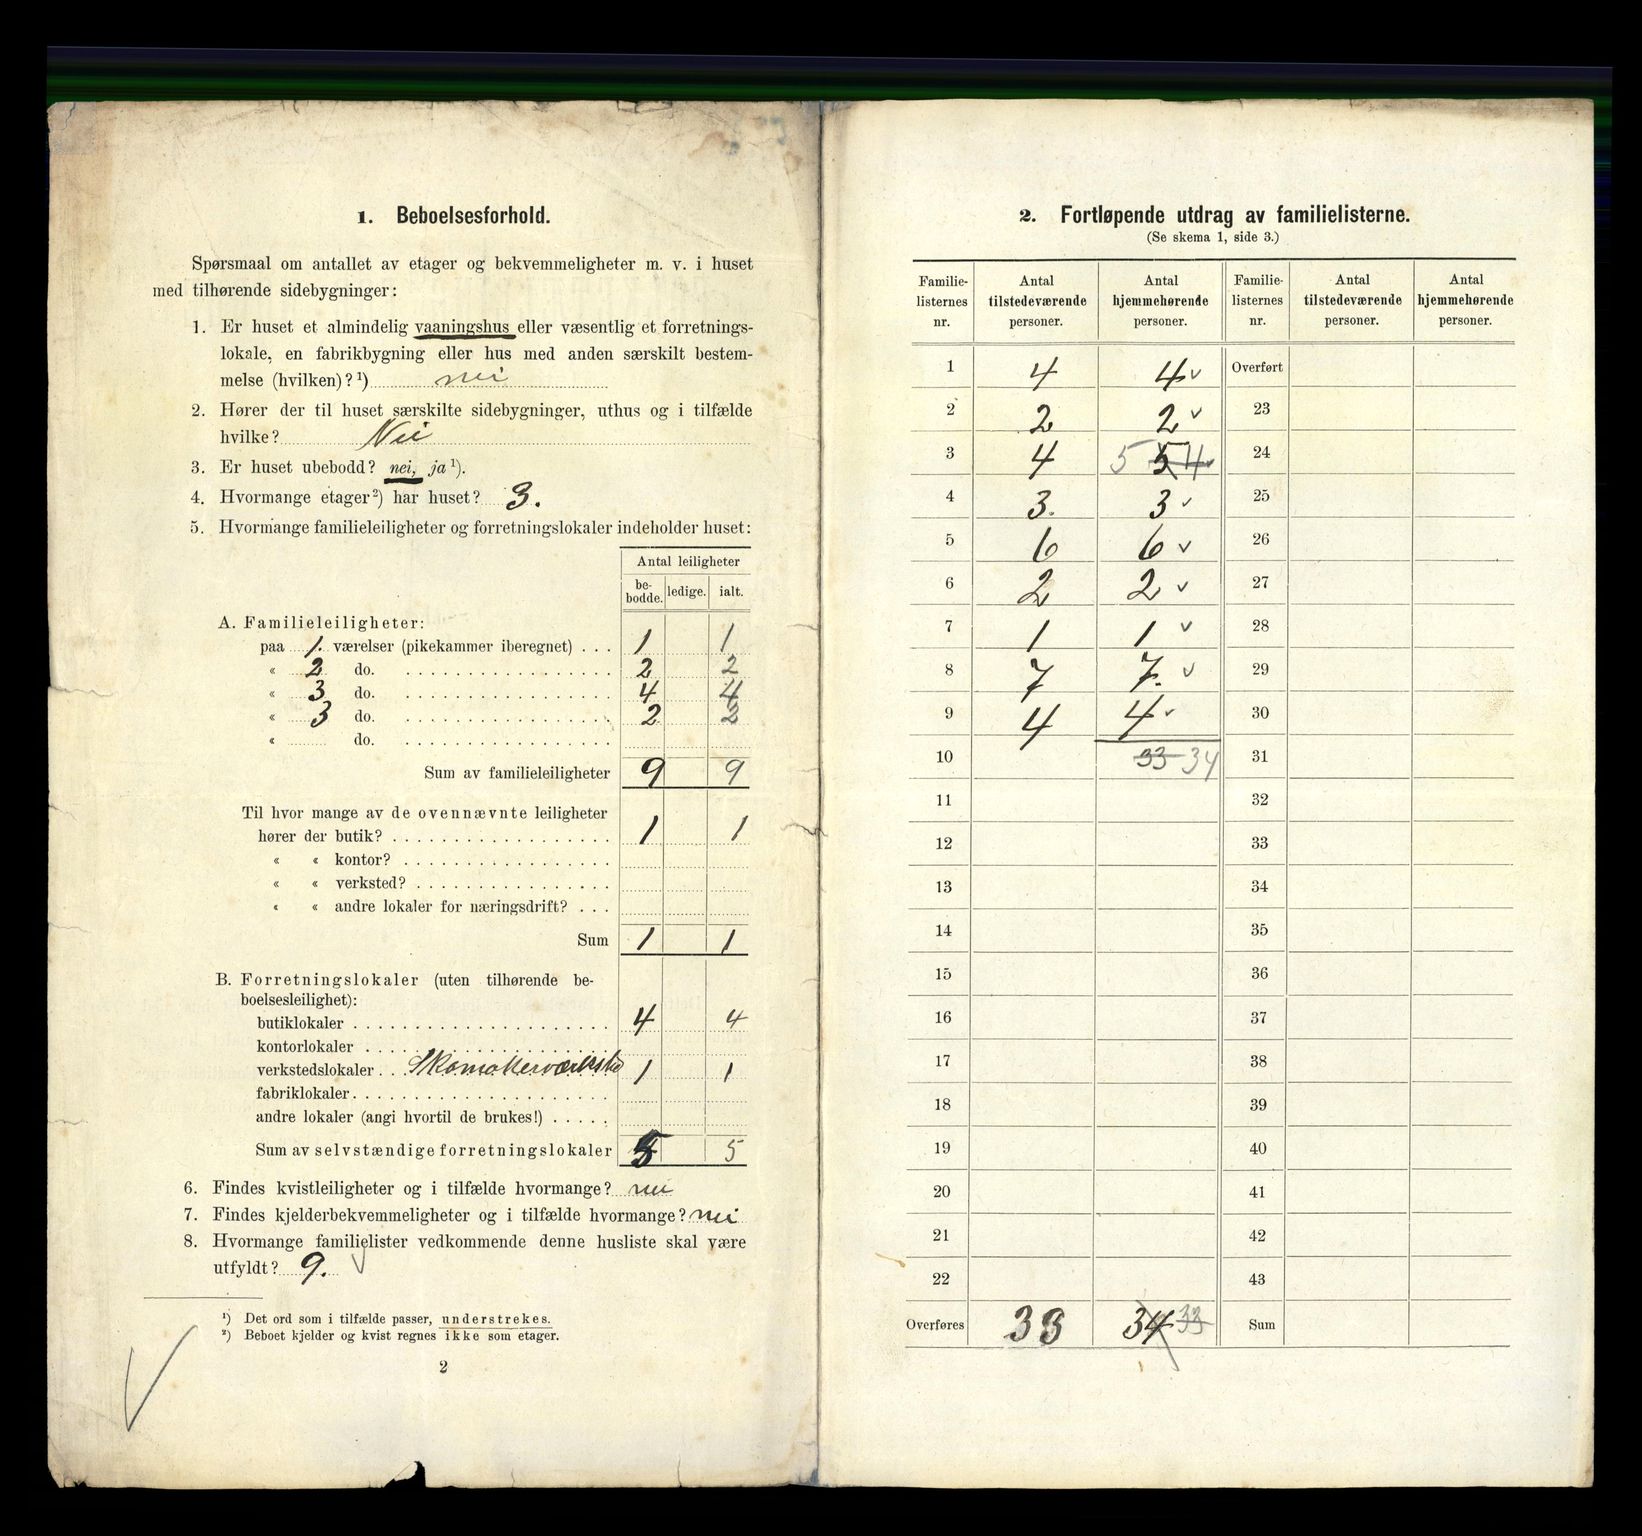 1. Beboelsesforhold.
Spørsmaal om antallet av etager og bekvemmeligheter m. v. i huset
med tilhørende sidebygninger:
1. Er huset et almindelig vaaningshus eller væsentlig et forretnings-
lokale, en fabrikbygning eller hus med anden særskilt bestem-
melse (hvilken)?¹) nei
2. Hører der til huset særskilte sidebygninger, uthus og i tilfælde
hvilke? Nei
3. Er huset ubebodd? nei, ja¹).
4. Hvormange etager²) har huset? 3.
5. Hvormange familieleiligheter og forretningslokaler indeholder huset:
Antal leiligheter
be-
bodde. ledige. ialt.
A. Familieleiligheter:
paa 1. værelser (pikekammer iberegnet) . . . 1 1
« 2 do. . . . . . . . . . . . . . . . . . 2 2
« 3 do. . . . . . . . . . . . . . . . . . 4 4
« 3 do. . . . . . . . . . . . . . . . . . 2 2
« do. . . . . . . . . . . . . . . . . .
Sum av familieleiligheter 9 9
Til hvor mange av de ovennævnte leiligheter
hører der butik? . . . . . . . . . . . . . . . . . 1 1
« « kontor? . . . . . . . . . . . . . . . .
« « verksted? . . . . . . . . . . . . . . .
« « andre lokaler for næringsdrift? . . .
Sum 1 1
B. Forretningslokaler (uten tilhørende be-
boelsesleilighet):
butiklokaler . . . . . . . . . . . . . . . . . . . . 4 4
kontorlokaler . . . . . . . . . . . . . . . . . . .
verkstedslokaler . . 1 1
fabriklokaler . . . . . . . . . . . . . . . . . . . .
andre lokaler (angi hvortil de brukes!) . . . . .
Sum av selvstændige forretningslokaler 5 5
6. Findes kvistleiligheter og i tilfælde hvormange? nei
7. Findes kjelderbekvemmeligheter og i tilfælde hvormange? nei
8. Hvormange familielister vedkommende denne husliste skal være
utfyldt? 9.
¹) Det ord som i tilfælde passer, understrekes.
²) Beboet kjelder og kvist regnes ikke som etager.
2
2. Fortløpende utdrag av familielisterne.
(Se skema 1, side 3.)
Familie- Antal Antal Familie- Antal Antal
listernes tilstedeværende hjemmehørende listernes tilstedeværende hjemmehørende
nr. personer. personer. nr. personer. personer.
1 4 4 Overført
2 2 2 23
3 4 5 5 4 24
4 3. 3 25
5 6 6 26
6 2 2 27
7 1 1 28
8 7 7. 29
9 4 4 30
10 33 34 31
11 32
12 33
13 34
14 35
15 36
16 37
17 38
18 39
19 40
20 41
21 42
22 43
Overføres 33 34 33 Sum